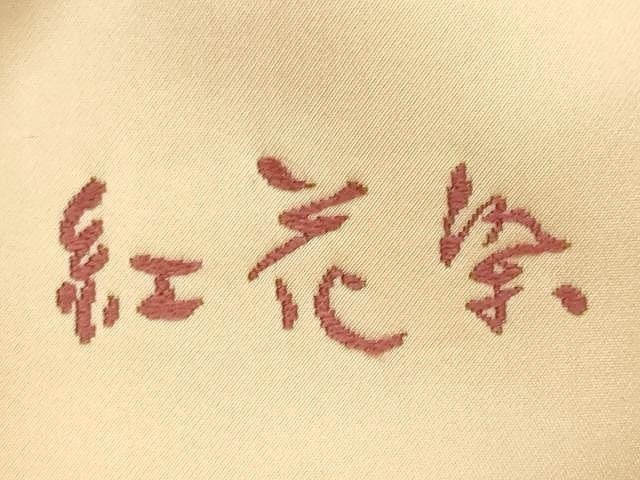 紅花染